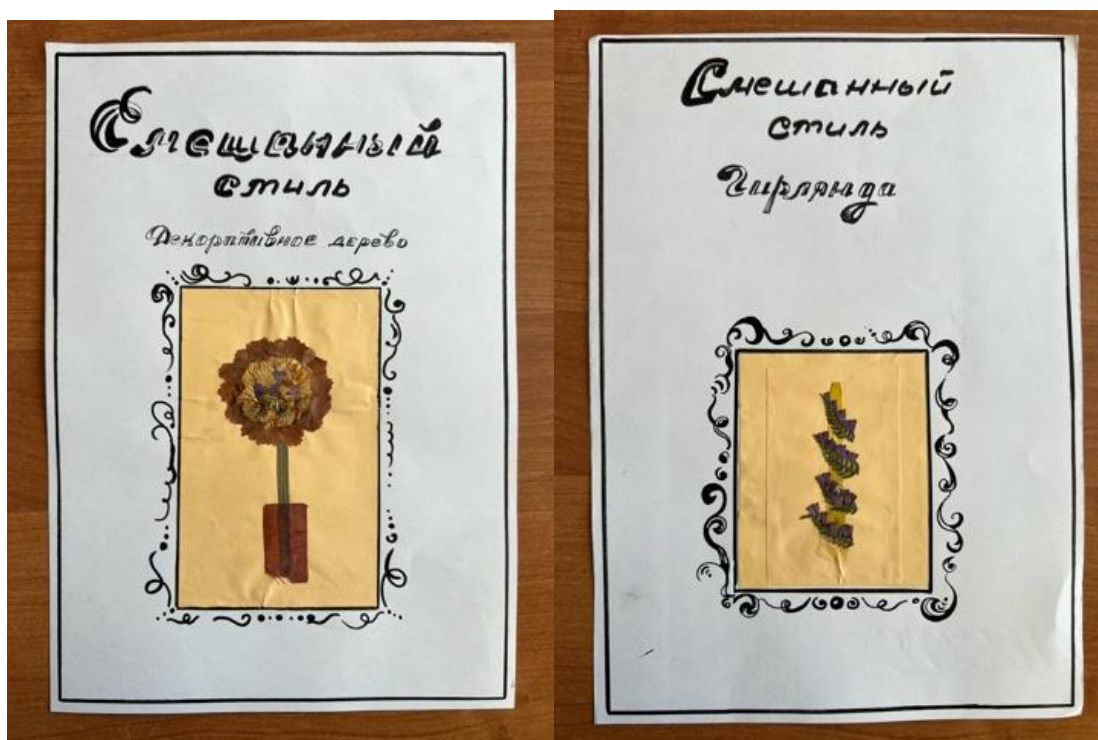 Смешанный
стиль
Декоративное дерево
Смешанный
стиль
Гирлянда